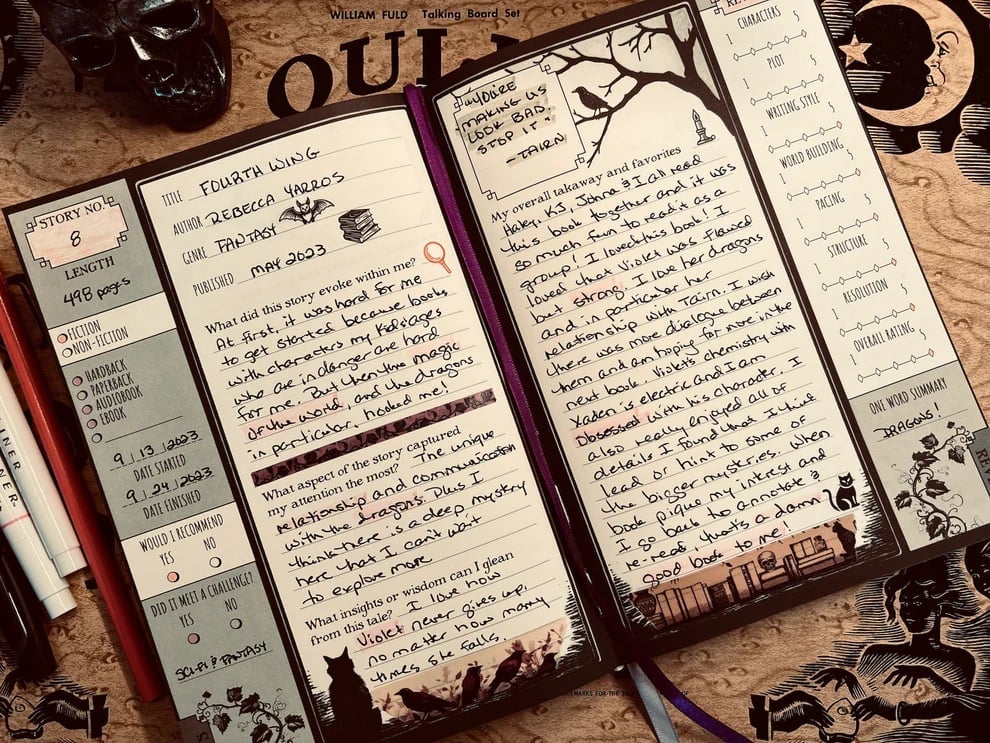 WILLIAM FULD Talking Board Set
STORY NO.
8
LENGTH
498 pages
FICTION
NON-FICTION
HARDBACK
PAPERBACK
AUDIOBOOK
EBOOK
9/13/2023
DATE STARTED
9/24/2023
DATE FINISHED
WOULD I RECOMMEND
YES NO
DID IT MEET A CHALLENGE?
YES NO
SCI-FI & FANTASY
TITLE FOURTH WING
AUTHOR REBECCA YARROS
GENRE FANTASY
PUBLISHED MAY 2023
What did this story evoke within me?
At first, it was hard for me
to get started because books
with characters my kids ages
who are in danger are hard
for me. But then the magic
of the world, and the dragons
in particular, hooked me!
What aspect of the story captured
my attention the most? The unique
relationship and communication
with the dragons. Plus I
think there is a deep mystery
here that I can't wait
to explore more
What insights or wisdom can I glean
from this tale? I love how
Violet never gives up,
no matter how many
times she falls.
"YOU'RE
MAKING US
LOOK BAD.
STOP IT."
-TAIRN
My overall takaway and favorites
Haley, KJ, Johna & I all read
this book together and it was
so much fun to read it as a
group! I loved this book! I
loved that Violet was flawed
but strong. I love her dragons
and in particular her
relationship with Tairn. I wish
there was more dialogue between
them and am hoping for more in the
next book. Violet's chemistry with
Xaden is electric and I am
obsessed with his character. I
also really enjoyed all of
details I found that I think
lead or hint to some of
the bigger mysteries. When
book pique my intrest and
I go back to annotate &
re-read, that's a damn
good book to me!
CHARACTERS
1 5
PLOT
1 5
WRITING STYLE
1 5
WORLD BUILDING
1 5
PACING
1 5
STRUCTURE
1 5
RESOLUTION
1 5
OVERALL RATING
1 5
ONE WORD SUMMARY
DRAGONS!